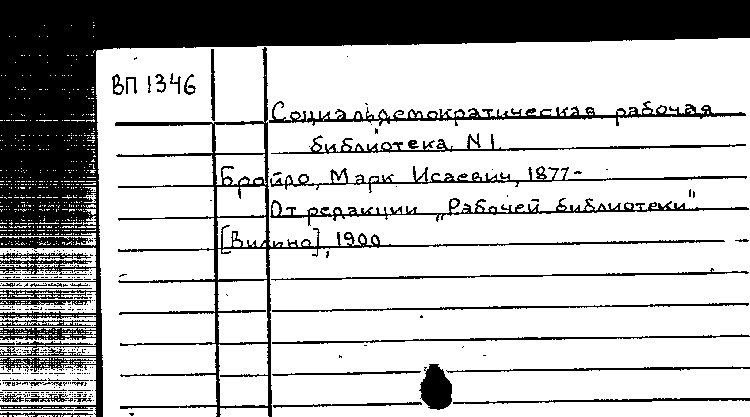 ВП 1346
Социальдемократическая рабочая
библиотека, N 1.
Бройдо, Марк Исаевич, 1877-
От редакции „Рабочей библиотеки"
[Вильно], 1900